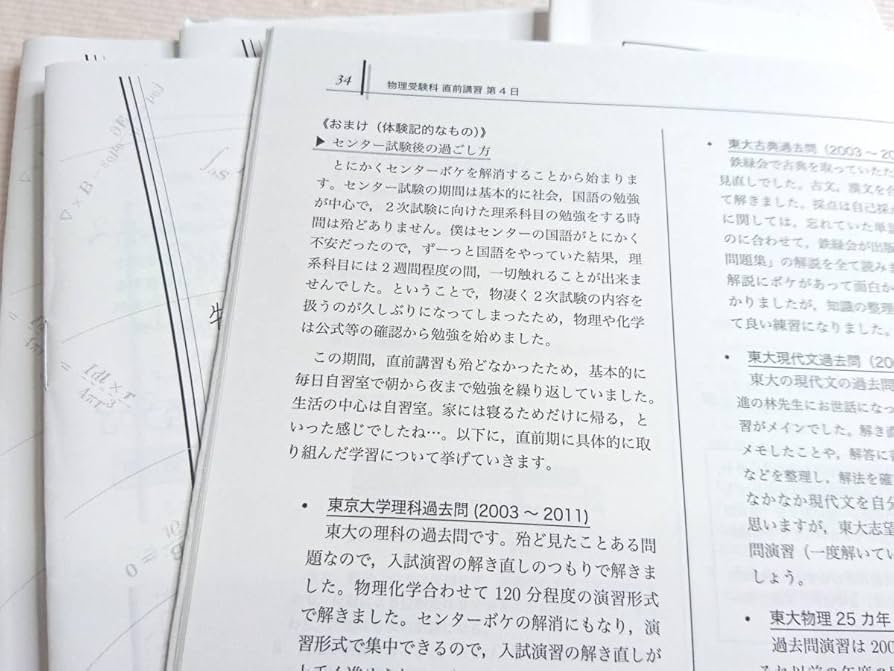 34
物理受験科 直前講習 第4日
《おまけ（体験記的なもの）》
▶ センター試験後の過ごし方
とにかくセンターボケを解消することから始まりま
す。センター試験の期間は基本的に社会，国語の勉強
が中心で，２次試験に向けた理系科目の勉強をする時
間は殆どありません。僕はセンターの国語がとにかく
不安だったので，ずーっと国語をやっていた結果，理
系科目には２週間程度の間，一切触れることが出来ま
せんでした。ということで，物凄く２次試験の内容を
扱うのが久しぶりになってしまったため，物理や化学
は公式等の確認から勉強を始めました。
この期間，直前講習も殆どなかったため，基本的に
毎日自習室で朝から夜まで勉強を繰り返していました。
生活の中心は自習室。家には寝るためだけに帰る，と
いった感じでしたね…。以下に，直前期に具体的に取
り組んだ学習について挙げていきます。
• 東京大学理科過去問 (2003 ～ 2011)
東大の理科の過去問です。殆ど見たことある問
題なので，入試演習の解き直しのつもりで解きま
した。物理化学合わせて 120 分程度の演習形式
で解きました。センターボケの解消にもなり，演
習形式で集中できるので，入試演習の解き直しが
• 東大古典過去問（2003 ～ 20
鉄緑会で古典を取っていたた
見直しでした。古文，漢文を
て解きました。採点は自己採
に関しては，忘れていた単
のに合わせて，鉄緑会が出版
問題集」の解説を全て読み
解説にボケがあって面白か
かりましたが，知識の整理
て良い練習になりました。
• 東大現代文過去問（20
東大の現代文の過去問
進の林先生にお世話になっ
習がメインでした。解き直
メモしたことや，解答に
などを整理し，解法を確
なかなか現代文を自分
思いますが，東大志望
問演習（一度解いてい
しょう。
• 東大物理 25 カ年
過去問演習は 200